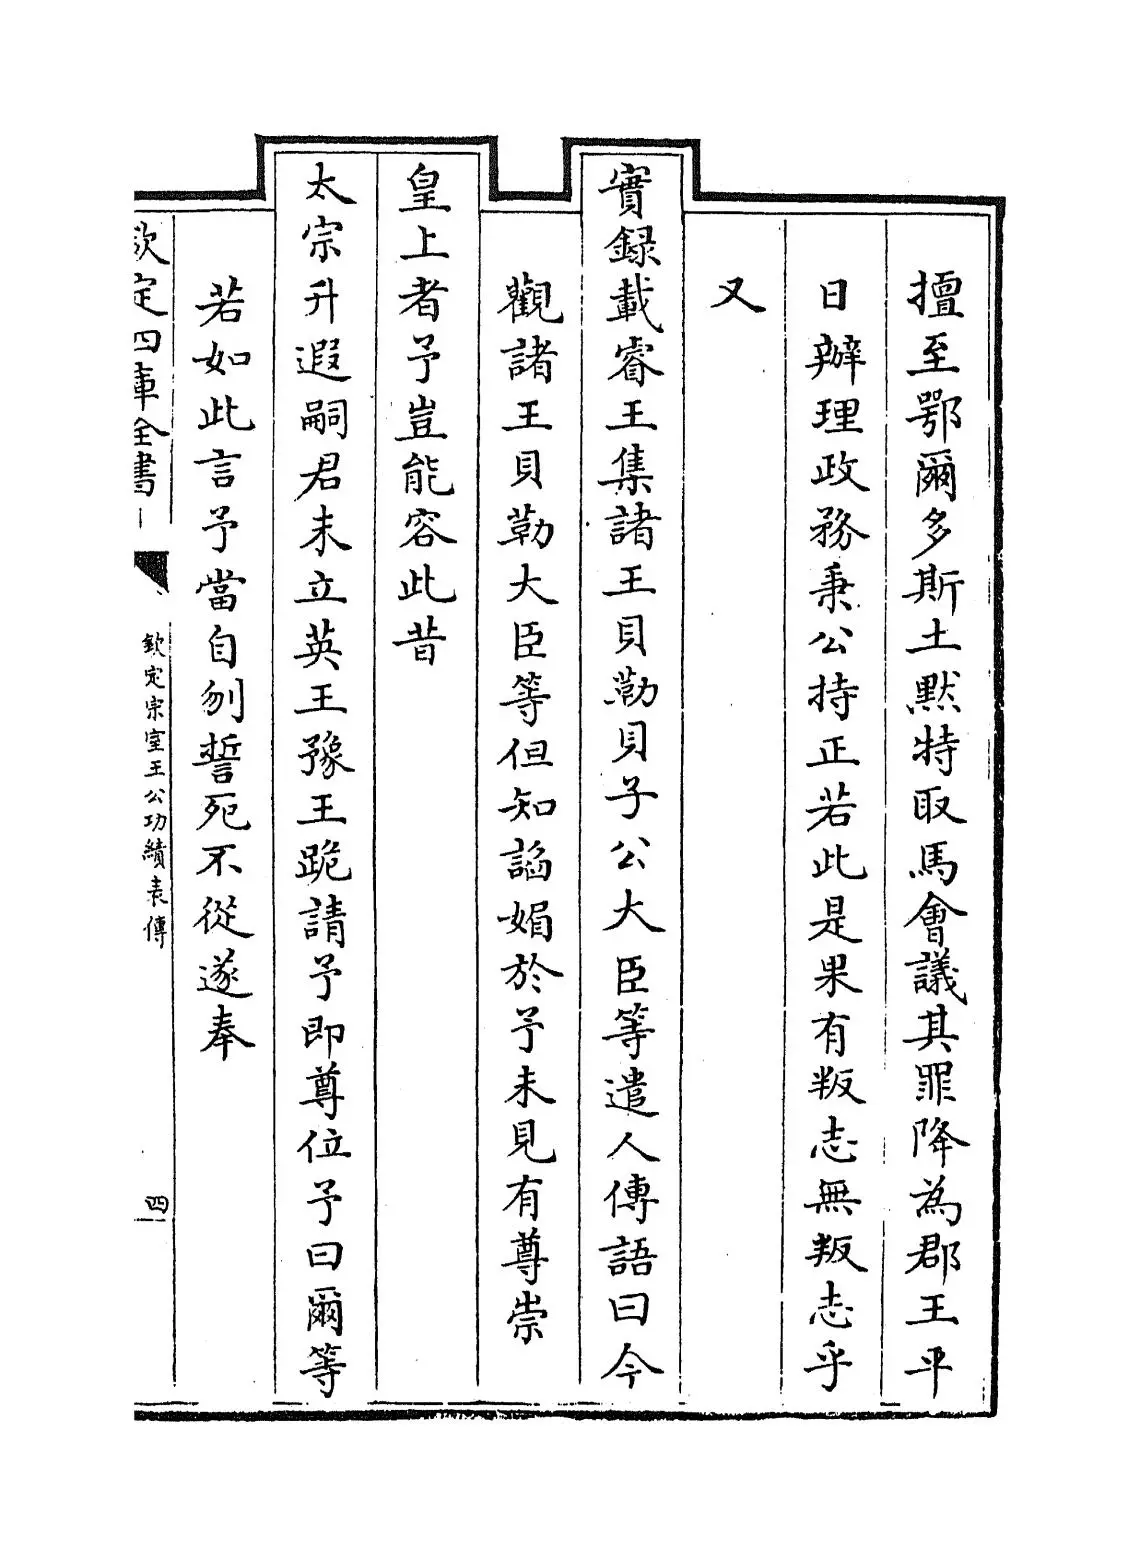 擅至鄂爾多斯土黙特取馬會議其罪降為郡王平
日辦理政務秉公持正若此是果有叛志無叛志乎
又
實録載睿王集諸王貝勒貝子公大臣等遣人傳語曰今
觀諸王貝勒大臣等但知謟媚於予未見有尊崇
皇上者予豈能容此昔
太宗升遐嗣君未立英王豫王跪請予即尊位予曰爾等
若如此言予當自刎誓死不從遂奉
欽定四庫全書
欽定宗室王公功績表傳
四